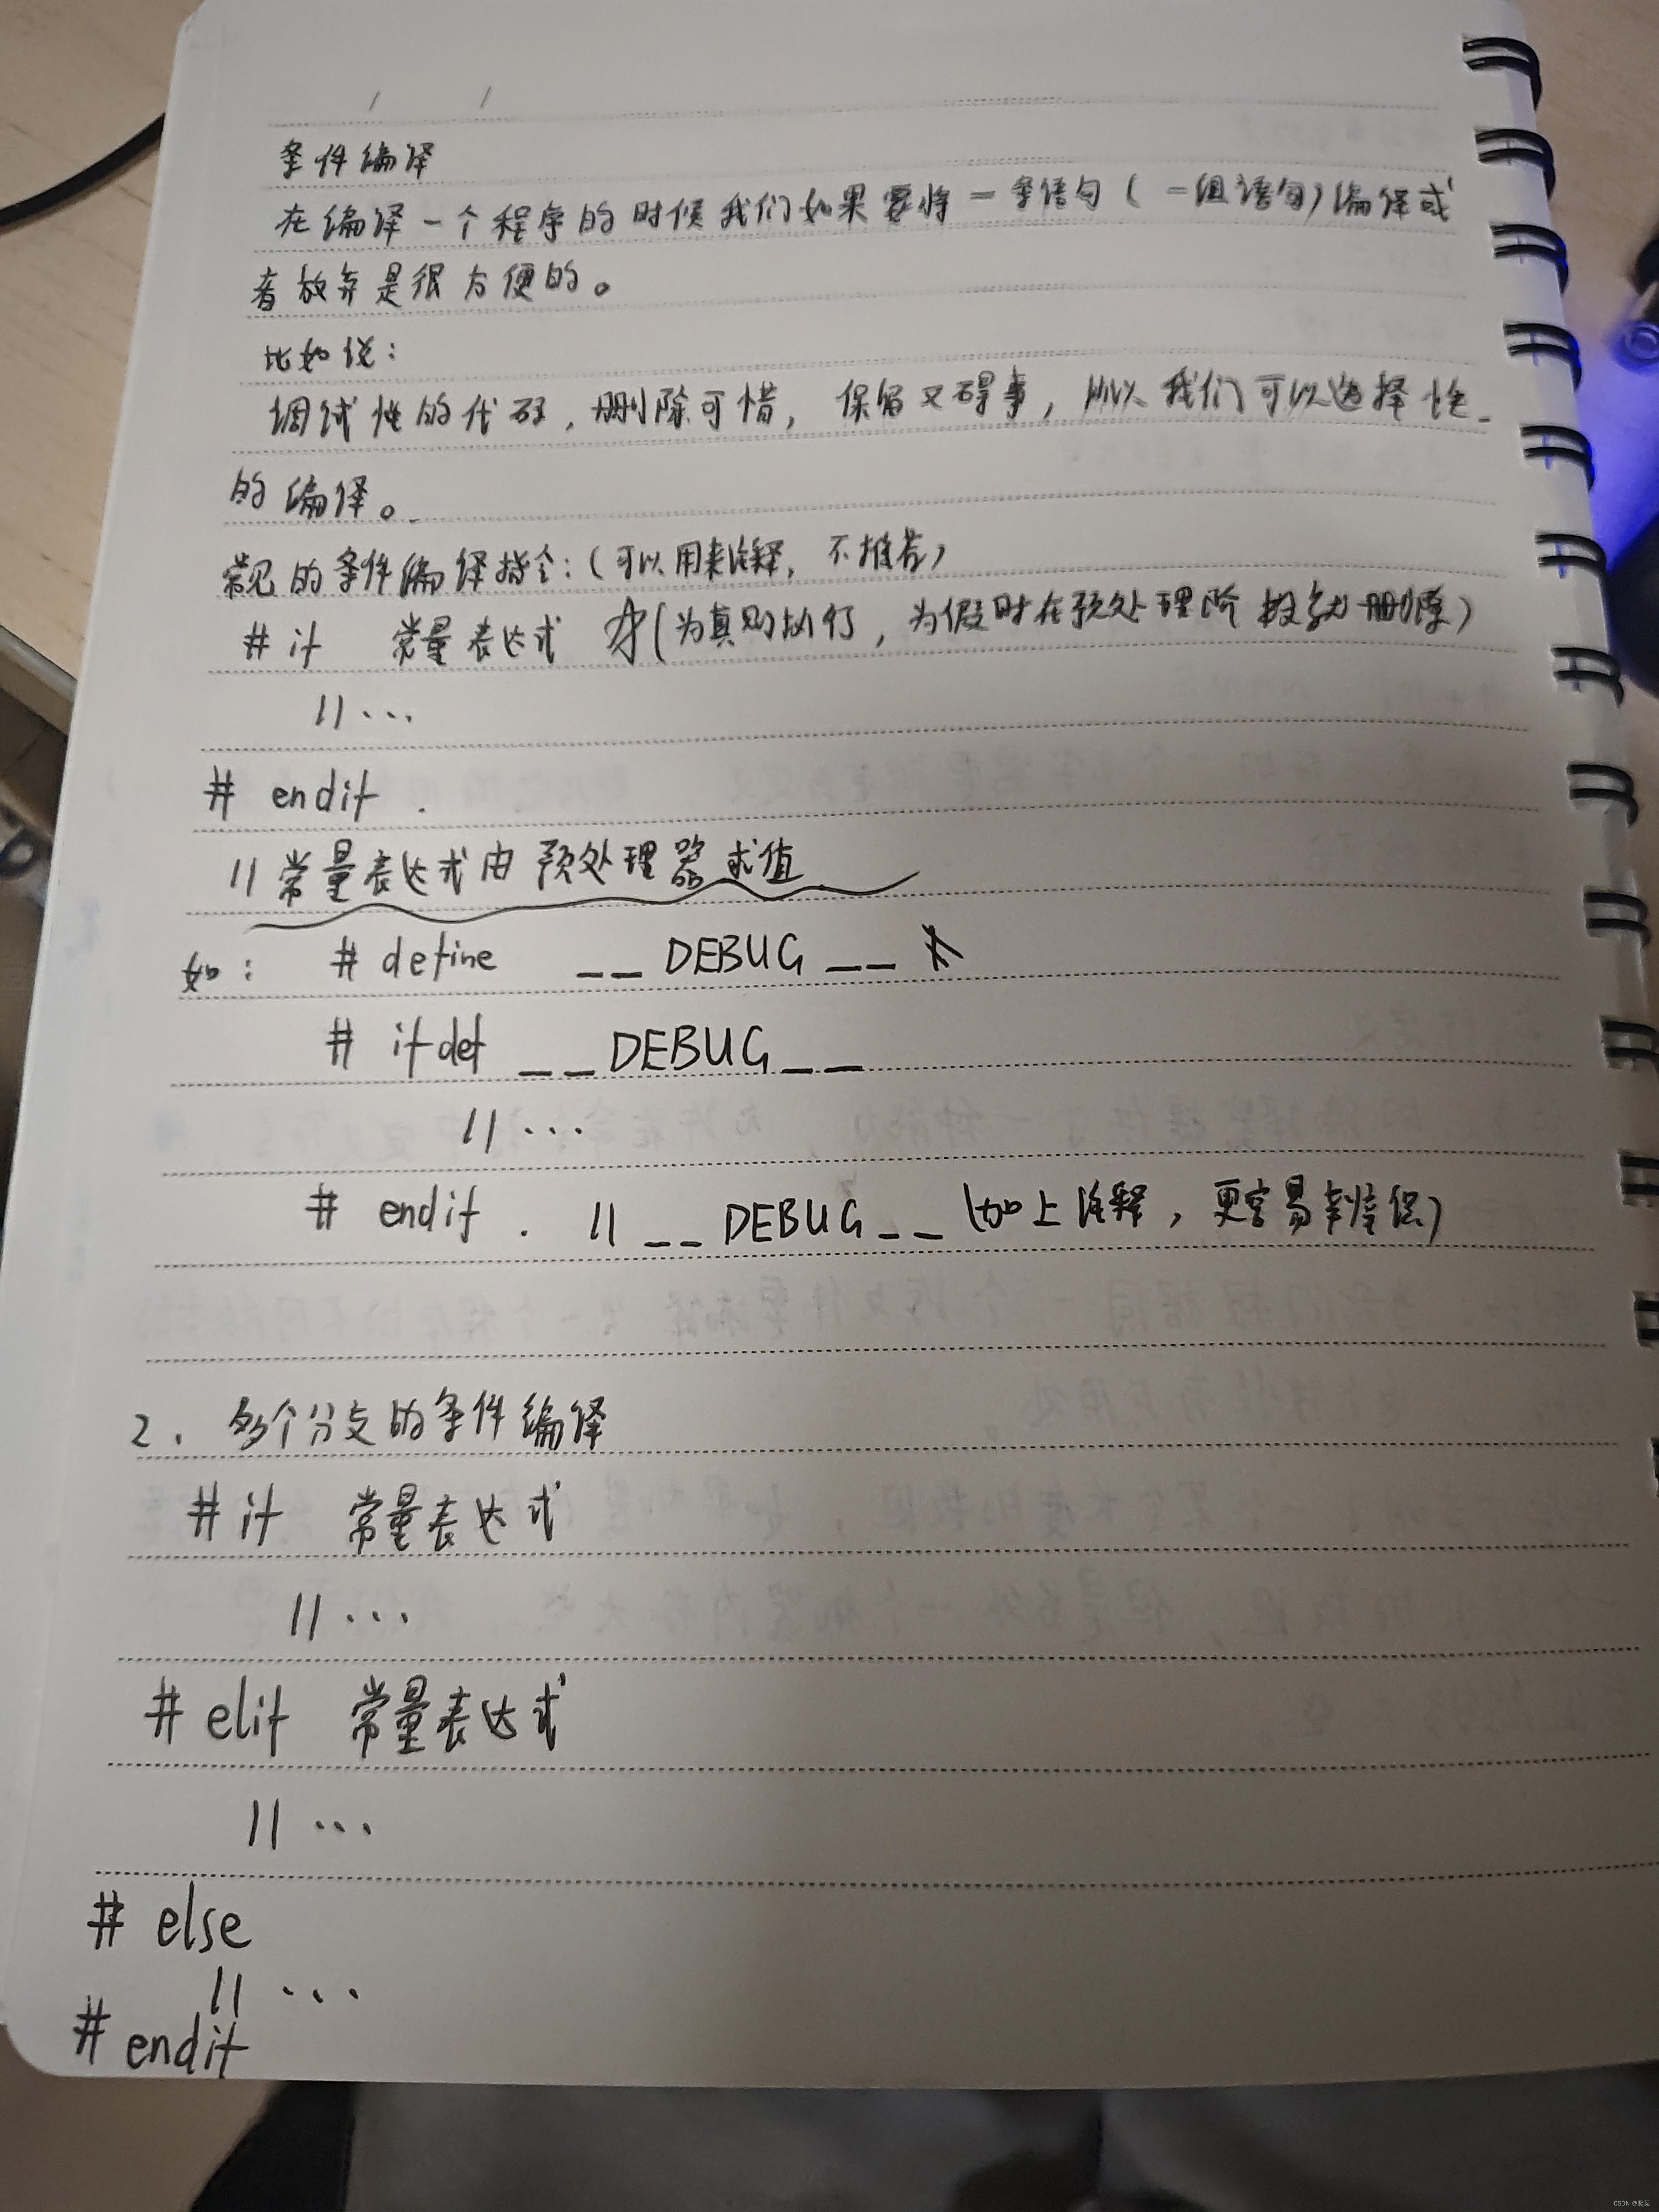 条件编译
在编译一个程序的时候我们如果要将一条语句(一组语句)编译或
者放弃是很方便的。
比如说:
调试性的代码,删除可惜,保留又碍事,所以我们可以选择性
的编译。
常见的条件编译指令:(可以用来注释,不推荐)
#if 常量表达式 (为真则执行,为假时在预处理阶段就删除)
//...
# endif .
//常量表达式由预处理器求值
如: # define __DEBUG__
# ifdef __DEBUG__
//...
# endif . // __DEBUG__ (加上注释,更容易
2. 多个分支的条件编译
#if 常量表达式
//...
# elif 常量表达式
//...
# else
//...
# endif
CSDN @爬菜